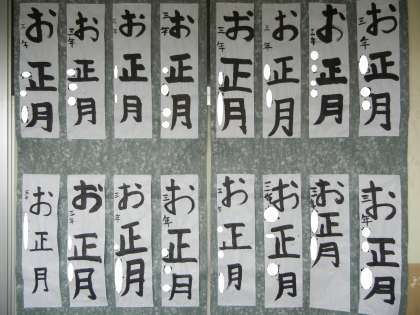 お正月
三年
お正月
三年
お正月
三年
お正月
三年
お正月
三年
お正月
三年
お正月
三年
お正月
三年
お正月
三年
お正月
三年
お正月
三年
お正月
三年
お正月
三年
お正月
三年
お正月
三年
お正月
三年